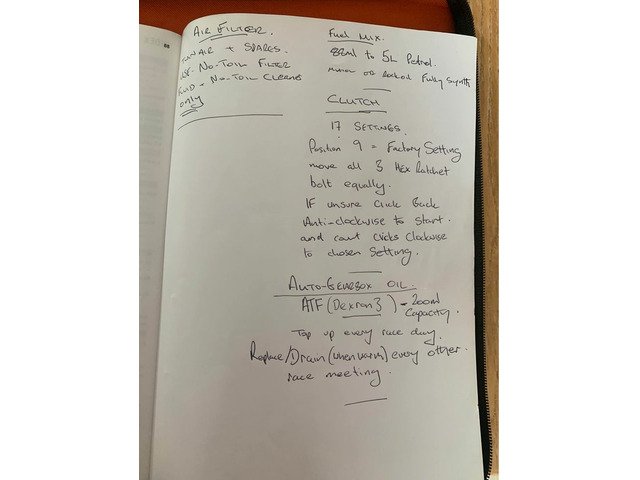 AIR FILTER.
AIR + SPARES.
NO-TOIL FILTER
FLUID + NO-TOIL CLEANER
only
Fuel Mix.
88ml to 5L Petrol.
or Fully synth
CLUTCH
17 SETTINGS.
Position 9 = Factory Setting
move all 3 Hex Ratchet
bolt equally.
IF unsure click back
Anti-clockwise to start.
and count clicks clockwise
to chosen Setting.
AUTO-GEARBOX OIL.
ATF (Dexron 3) - 200ml
Capacity.
Top up every race day.
Replace/Drain (when warm) every other
race meeting.